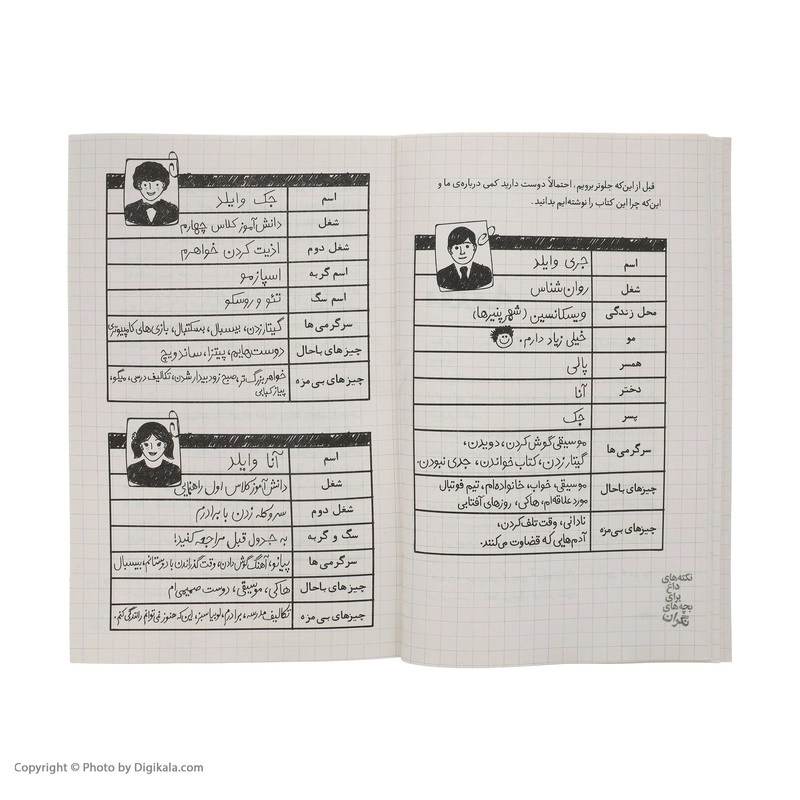 قبل از این‌که جلوتر برویم، احتمالاً دوست دارید کمی درباره‌ی ما و
این‌که چرا این کتاب را نوشته‌ایم بدانید.
اسم جری وایلد
شغل روان‌شناس
محل زندگی ویسکانسین (شهر پنیرها)
مو خیلی زیاد دارم.
همسر پالی
دختر آنا
پسر جک
سرگرمی‌ها موسیقی گوش کردن، دویدن،
گیتار زدن، کتاب خواندن، جدی نبودن.
چیزهای باحال موسیقی، خواب، خانواده‌ام، تیم فوتبال
مورد علاقه‌ام، هاکی، روزهای آفتابی
چیزهای بی‌مزه نادانی، وقت تلف کردن،
آدم‌هایی که قضاوت می‌کنند.
نکته‌های
داغ
برای
بچه‌های
نگران
اسم جک وایلد
شغل دانش‌آموز کلاس چهارم
شغل دوم اذیت کردن خواهرم
اسم گربه اسپازمو
اسم سگ نئو و روسکو
سرگرمی‌ها گیتار زدن، بیسبال، بسکتبال، بازی‌های کامپیوتری
چیزهای باحال دوست‌هایم، پیتزا، ساندویچ
چیزهای بی‌مزه خواهر بزرگ‌تر، صبح زود بیدار شدن، تکالیف درسی، میگو،
پیاز کبابی
اسم آنا وایلد
شغل دانش‌آموز کلاس اول راهنمایی
شغل دوم سر و کله زدن با برادرم
سگ و گربه به جدول قبل مراجعه کنید!
سرگرمی‌ها پیانو، آهنگ گوش دادن، وقت گذراندن با دوستانم، بیسبال
چیزهای باحال هاکی، موسیقی، دوست صمیمی‌ام
چیزهای بی‌مزه تکالیف مدرسه، برادرم، لوبیا سبز، این‌که هنوز نمی‌توانم رانندگی کنم.
Copyright © Photo by Digikala.com